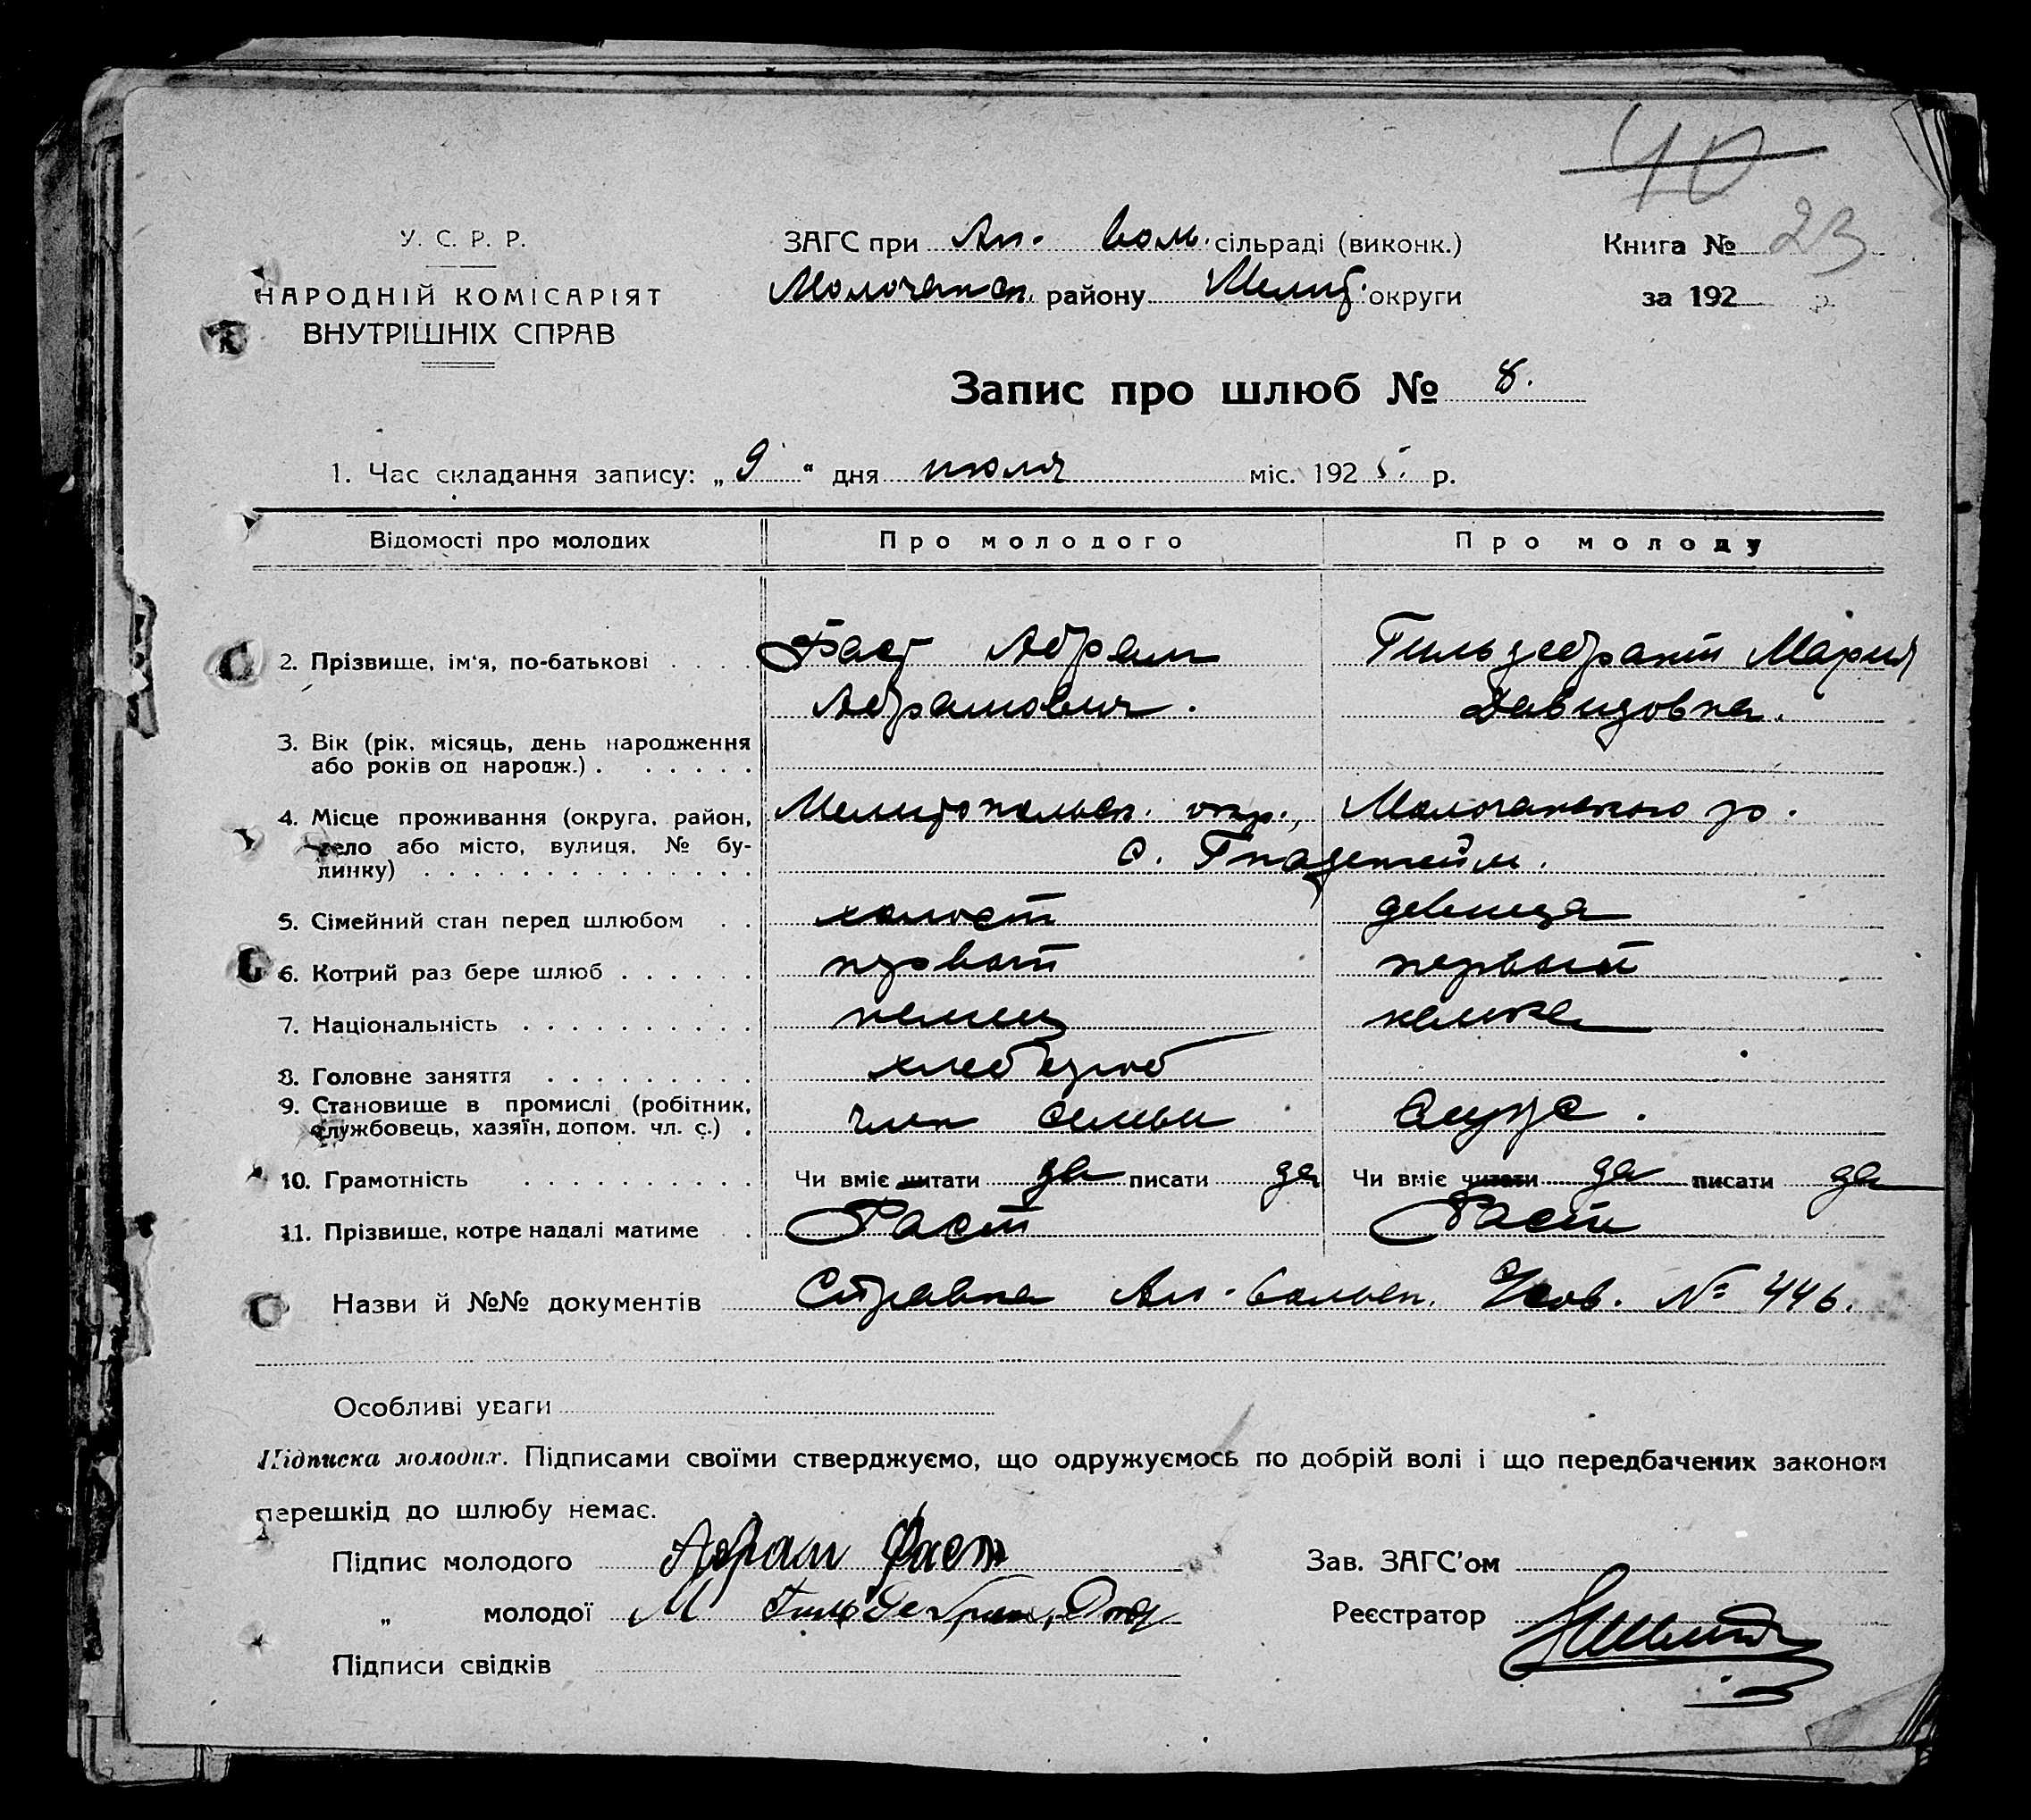 40
У. С. Р. Р.
НАРОДНІЙ КОМІСАРІЯТ
ВНУТРІШНІХ СПРАВ
ЗАГС при Ал. Вол. сільраді (виконк.)
Молочанск. району Мелит. округи
Книга № 23
за 192 р.
Запис про шлюб № 8.
1. Час складання запису: „ 9 “ дня июля міс. 1925. р.
Відомості про молодих Про молодого Про молоду
2. Прізвище, ім'я, по-батькові . . . . Фаст Абрам Гильдебрант Мария
Абрамович. Давидовна.
3. Вік (рік, місяць, день народження
або років од народж.) . . . . . .
4. Місце проживання (округа, район, Мелитопольск. окр., Молочанского р.
село або місто, вулиця, № бу-
динку) . . . . . . . . . . . . . . с. Гнаденгейм.
5. Сімейний стан перед шлюбом . . холост девица
6. Котрий раз бере шлюб . . . . . . первый первый
7. Національність . . . . . . . . . . немец немка
8. Головне заняття . . . . . . . . . хлебороб
9. Становище в промислі (робітник, член семьи
службовець, хазяїн, допом. чл. с.) .
10. Грамотність . . . . . . . . . . Чи вміє читати да писати да Чи вміє читати да писати да
11. Прізвище, котре надалі матиме . . Фаст Фаст
Назви й №№ документів Справка Ал-Вольск. № 446.
Особливі уваги
Підписка молодих. Підписами своїми стверджуємо, що одружуємось по добрій волі і що передбачених законом
перешкід до шлюбу немає.
Підпис молодого Абрам Фаст
Зав. ЗАГС'ом
„ молодої М Гильдебранд
Реєстратор
Підписи свідків